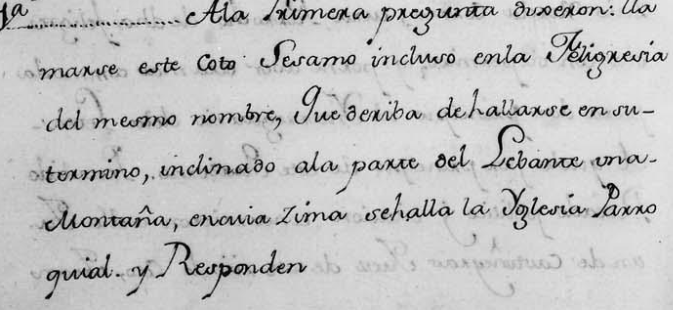 1ª ........................ Ala Primera pregunta dixeron: lla
marse este Coto Sesamo incluso enla Feligresia
del mesmo nombre, Que deriba dehallarse en su-
termino, inclinado ala parte del Lebante una-
Montaña, encuia Zima sehalla la Yglesia Parro
quial. y Responden